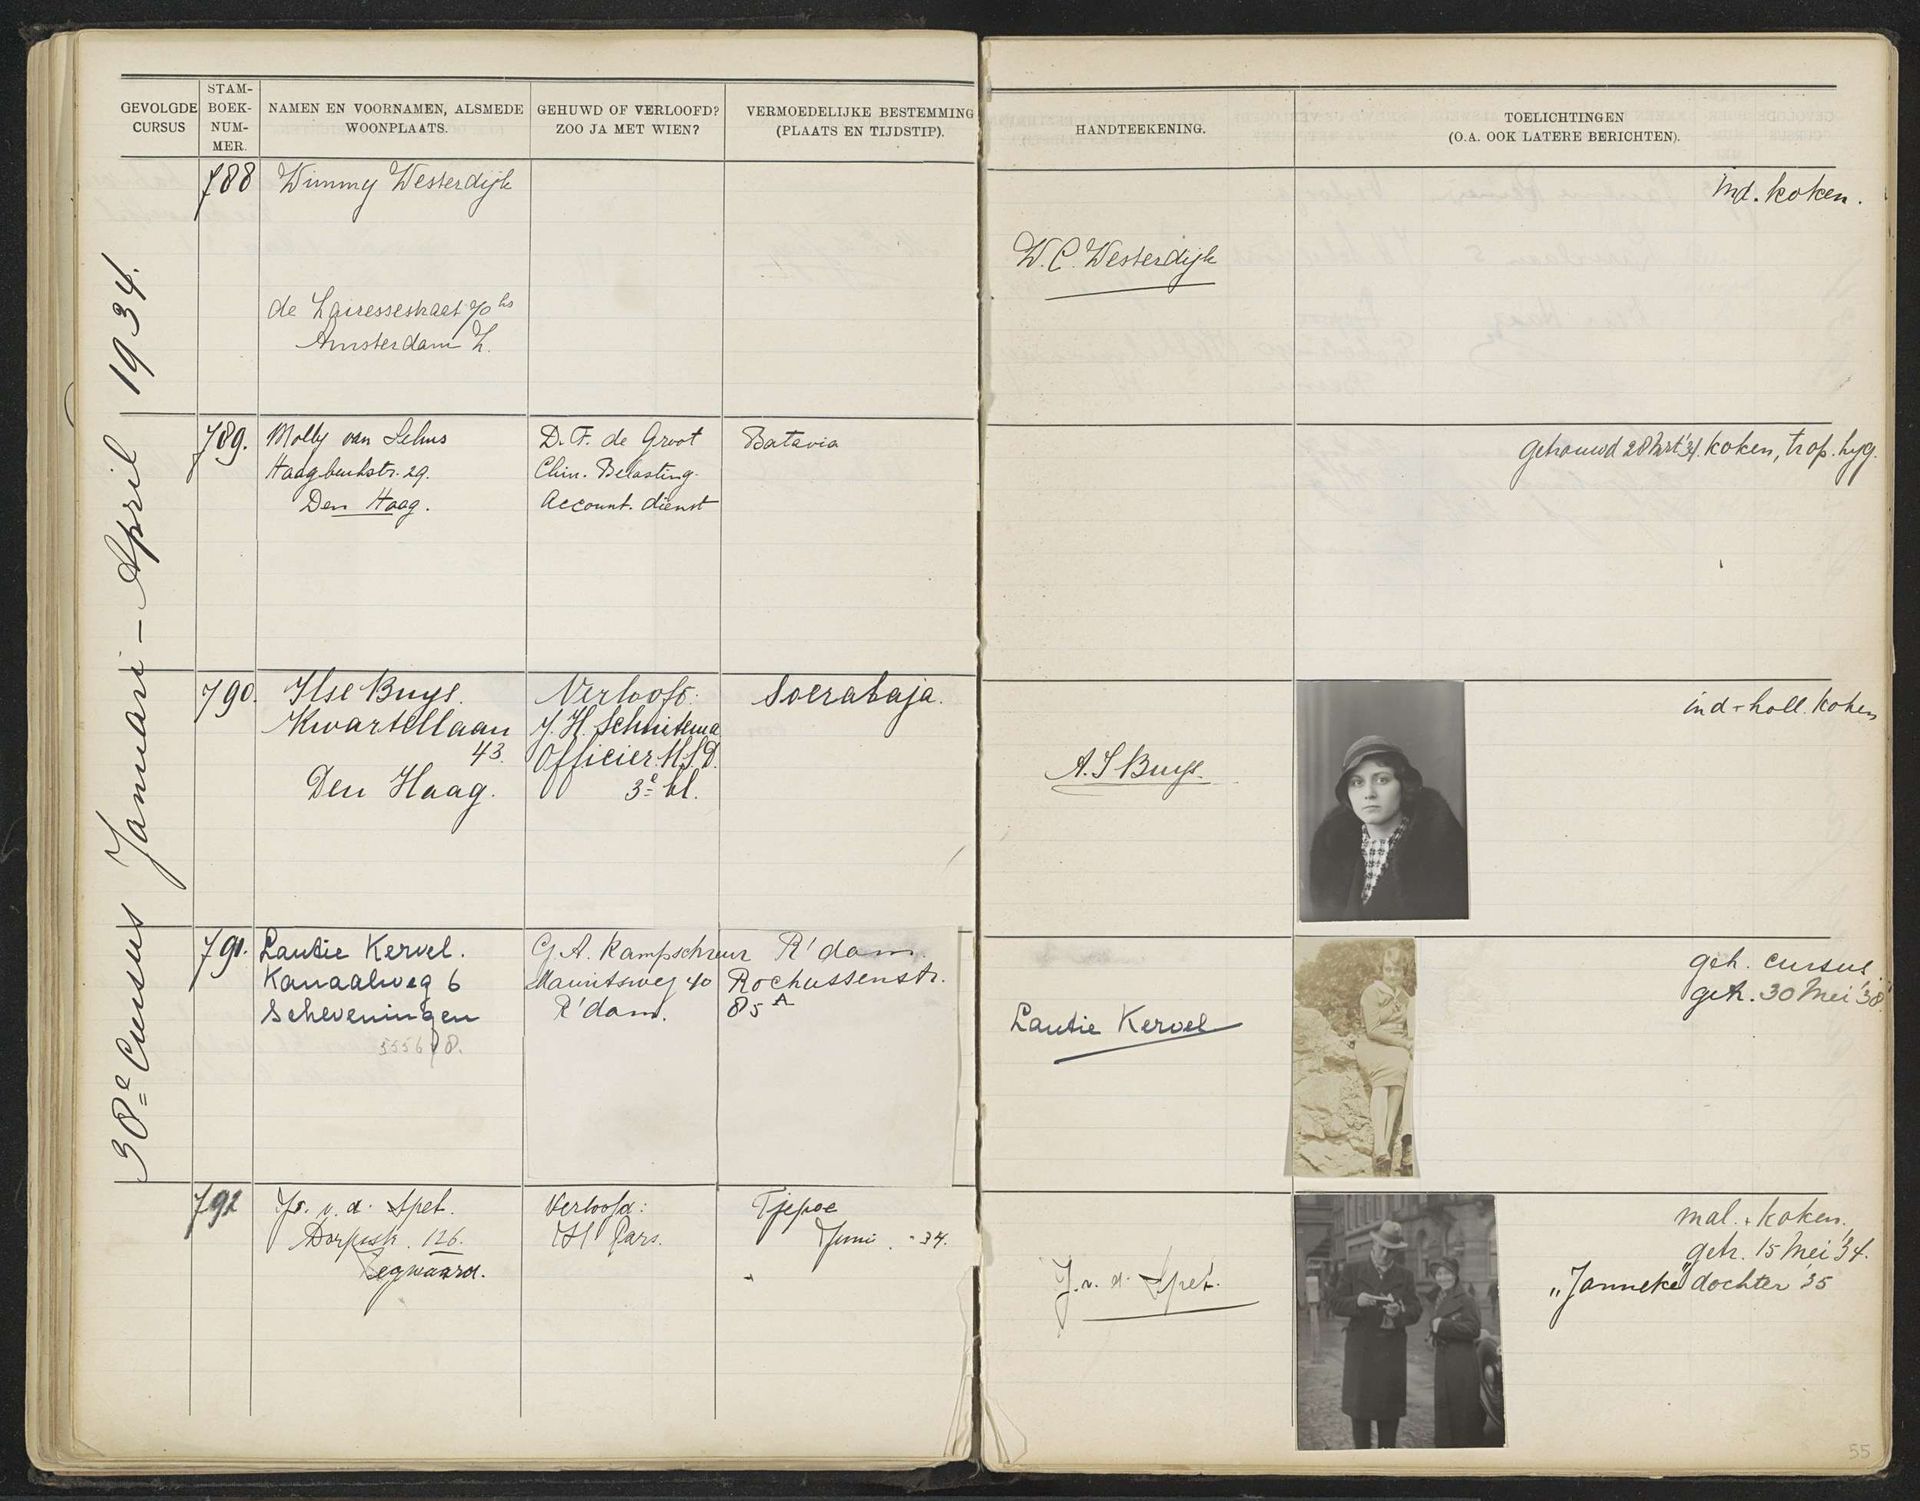 GEVOLGDE CURSUS
STAM-BOEK-NUM-MER.
NAMEN EN VOORNAMEN, ALSMEDE WOONPLAATS.
GEHUWD OF VERLOOFD? ZOO JA MET WIEN?
VERMOEDELIJKE BESTEMMING (PLAATS EN TIJDSTIP).
HANDTEEKENING.
TOELICHTINGEN
(O.A. OOK LATERE BERICHTEN).
38e Cursus Januari - April 1934.
788
Wimmy Westerdijk
de Lairessestraat 70 hs
Amsterdam Z.
W. C. Westerdijk
Ind. koken.
789.
Molly van
29.
Den Haag.
D. F. de Groot
Chin. Belasting.
Account. dienst
Batavia
getrouwd 28 '34. koken, trop. hyg.
790.
Ilse Buys.
Kwartellaan
43.
Den Haag.
Verloofd:
J. H. Schuitema
Officier M.S.D.
3e kl.
Soerabaja.
A. S Buys.
ind + holl. koken
791.
Lautie Kervel.
Kanaalweg 6
Scheveningen
G. A. Kampschreur
Mauritsweg 40
R'dam.
R'dam.
Rochussenstr.
85 A
Lautie Kervel
geh. cursus.
getr. 30 Mei '38.
792
v. d. Spek.
126.
Zegwaard.
Verloofd:
Pars.
Tjepoe
Juni - 34.
J. v. d. Spek.
mal. + koken.
getr. 15 Mei '34.
"Janneke" dochter '35
55